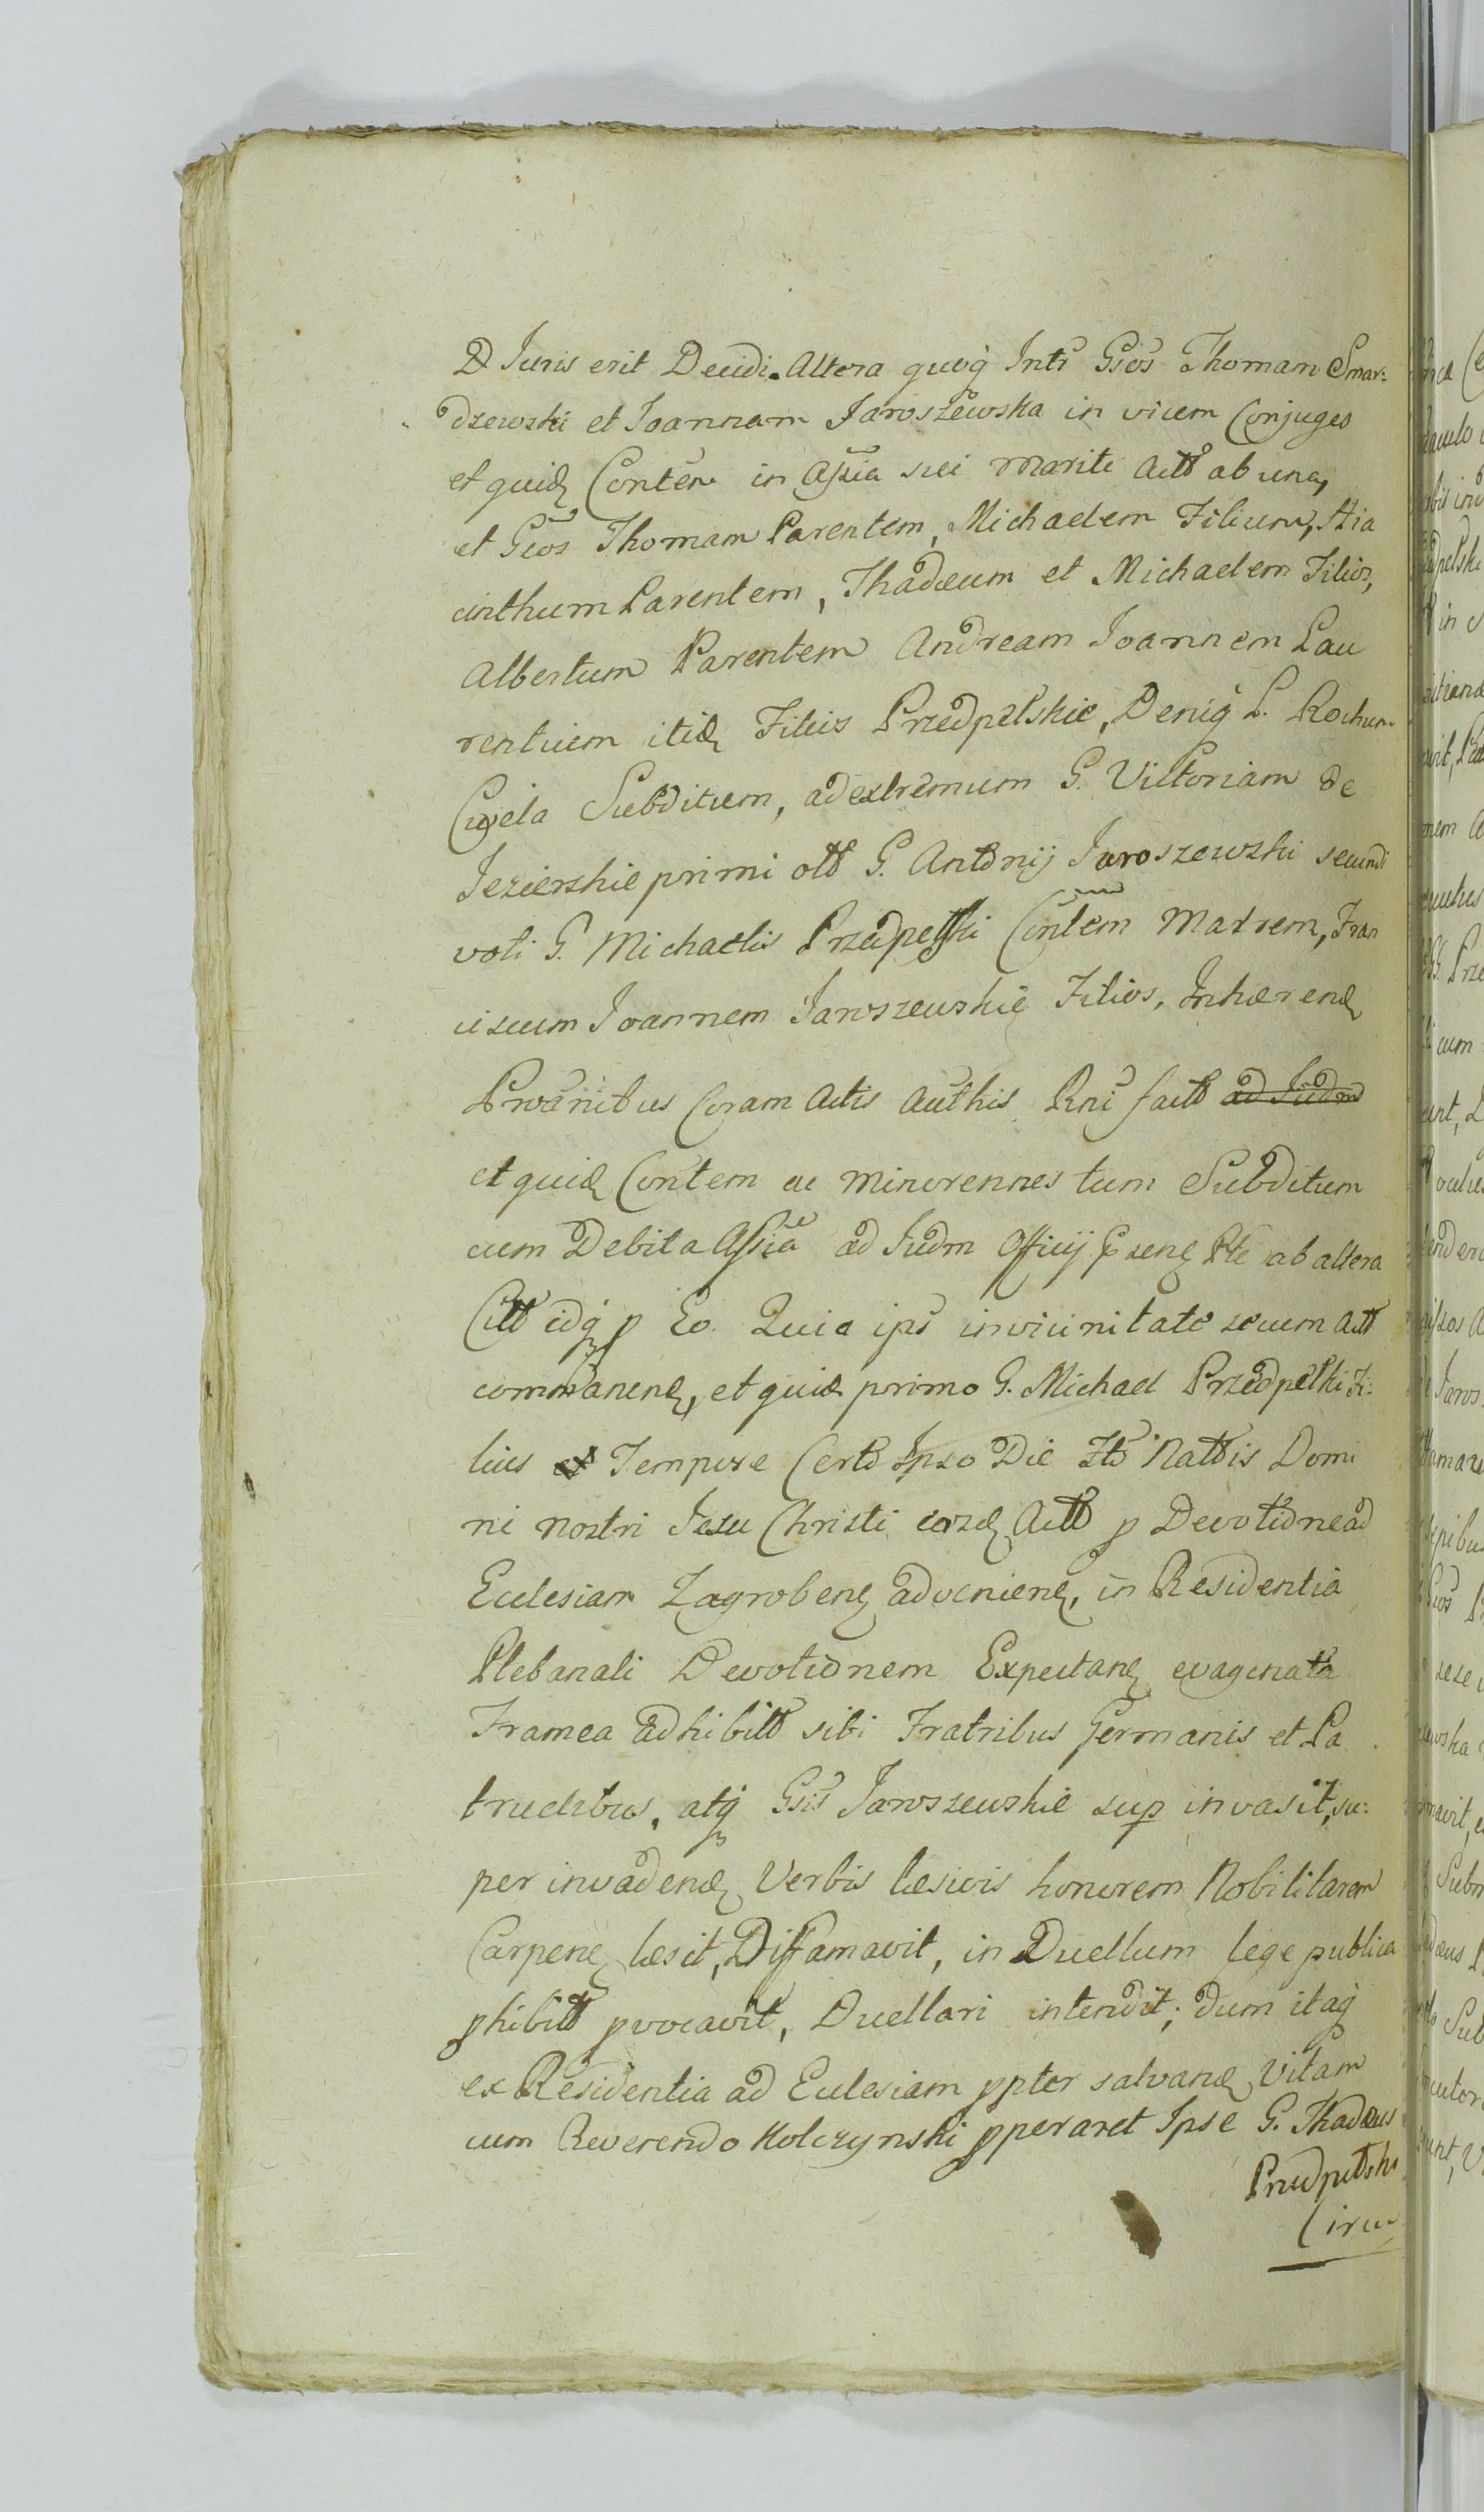 D Juris erit Decidi. Altera quoq Intr Gsos Thomam Smar:
dzewski et Joannam Jaroszewska in vicem Conjuges
et quidq Conten in Assia sui Mariti Actt ab una,
et Gsos Thomam Parentem, Michaelem Filium, Hia
cinthum Parentem, Thadæum et Michaelem Filios,
Albertum Parentem Andream Joannem Lau
rentium itidq Filiis Przedpelskie, Deniq L. Rochum
Cugela Subditum, ad extremum G. Victoriam de
Jezierskie primi ott G. Anttnij Jaroszewski secundi
voti G. Michaelis Przedpelski Contem Matrem, Fran
ciscum Joannem Jaroszewskie Filios, Inhærendq
Proanibus Coram Actis Authis Rni factt ad Judm
et quidq Contem ac Minorennes tum Subditum
cum Debita Assia ad Judm Officij Pzenq Ple ab altera
Citt idq p Eo. Quia ipi in vicinitate secum Actt
commanendq, et quidq primo G. Michael Przedpelski Fi:
lius Tempore Certo Ipso Die Ftt Nattis Domi
ni nostri Jesu Christi eorsdq Actt p Devottne ad
Ecclesiam Zagrobenq advenienq, in Residentia
Plebanali Devotionem Expectanq evaginata
Framea adhibitt sibi Fratribus Germanis et Pa
truelibus, atq Gsis Jaroszewskie sup invasit, su:
per invadendq Verbis læsivis honorem Nobilitarem
Carpenq læsit, Diffamavit, in Duellum lege publica
phibitt pvocavit, Duellari intendit; dum itaq
ex Residentia ad Ecclesiam ppter salvandq Vitam
cum Reverendo Kolczynski pperaret Ipse G. Thadæus
Przedpelski
Circu